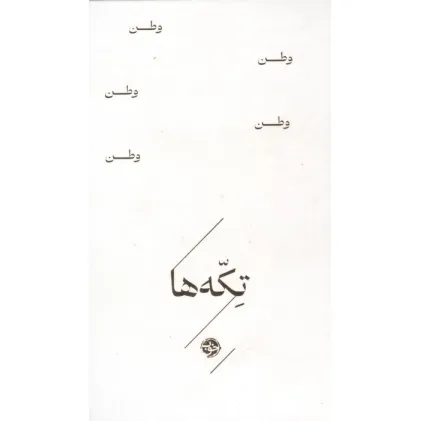 وطن
وطن
وطن
وطن
وطن
تِکّه‌ها